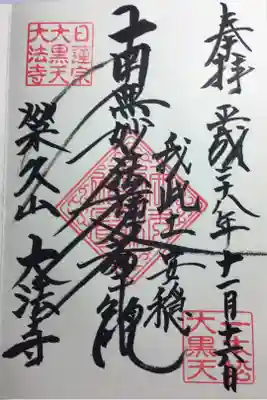 奉拝 平成二十八年十一月十六日
我此土安穏
南無妙法蓮華経
栄久山 大法寺
日蓮宗
大黒天
大法寺
一寸松
大黒天